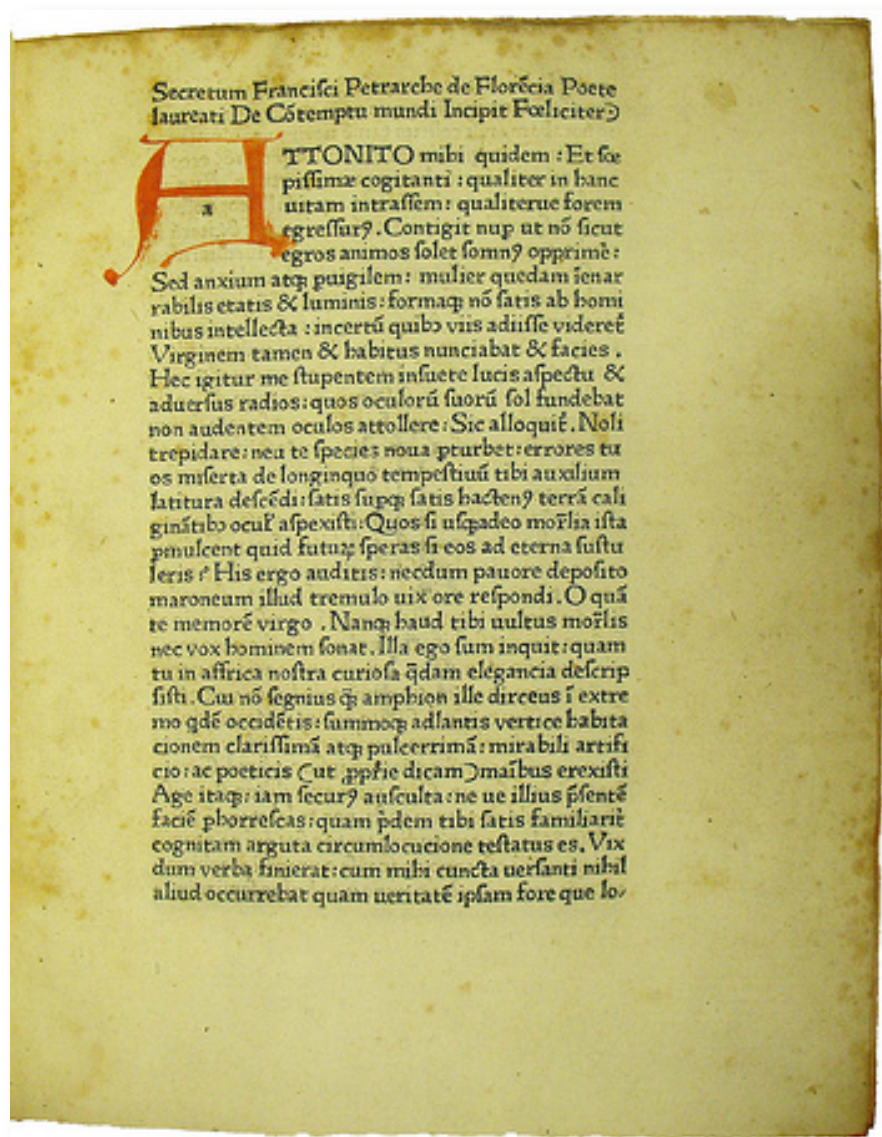 Secretum Francisci Petrarche de Florēcia Poete
laureati De Cōtemptu mundi Incipit Fœliciter
ATTONITO mihi quidem : Et sœ
a
pissimæ cogitanti : qualiter in hanc
uitam intrassem: qualiterue forem
egressurꝰ. Contigit nup ut nō sicut
egros animos solet somnꝰ opprimē:
Sed anxium atqꝫ puigilem: mulier quedam īenar
rabilis etatis & luminis: formaqꝫ nō satis ab homi
nibus intellecta : incertū quibꝰ viis adiisse videret̄
Virginem tamen & habitus nunciabat & facies .
Hec igitur me stupentem insuete lucis aspectu &
aduersus radios: quos oculorū suorū sol fundebat
non audentem oculos attollere: Sic alloquit̄. Noli
trepidare: neu te species noua ꝑturbet: errores tu
os miserta de longinquo tempestiuū tibi auxilium
latitura descēdi: satis supqꝫ satis hactenꝰ terrā cali
ginātibꝰ ocul̄ aspexisti: Quos si usqꝫadeo mor̄lia ista
ꝑmulcent quid futuꝝ speras si eos ad eterna sustu
leris ? His ergo auditis: necdum pauore deposito
maroneum illud tremulo uix ore respondi. O quā
te memorē virgo . Nanqꝫ haud tibi uultus mor̄lis
nec vox hominem sonat. Illa ego sum inquit: quam
tu in affrica nostra curiosa q̄dam elegancia descrip
sisti. Cui nō segnius q̄ꝫ amphion ille dirceus ī extre
mo qdē occidētis: summoqꝫ adlantis vertice habita
cionem clarissimā atqꝫ pulcerrimā: mirabili artifi
cio: ac poeticis (ut ꝓpr̄ie dicam) maībus erexisti
Age itaqꝫ: iam securꝰ ausculta: ne ue illius p̄sentē
faciē ꝑhorrescas: quam p̄dem tibi satis familiarit̄
cognitam arguta circumlocucione testatus es. Vix
dum verba finierat: cum mihi cuncta uersanti nihil
aliud occurrebat quam ueritatē ipsam fore que lo-